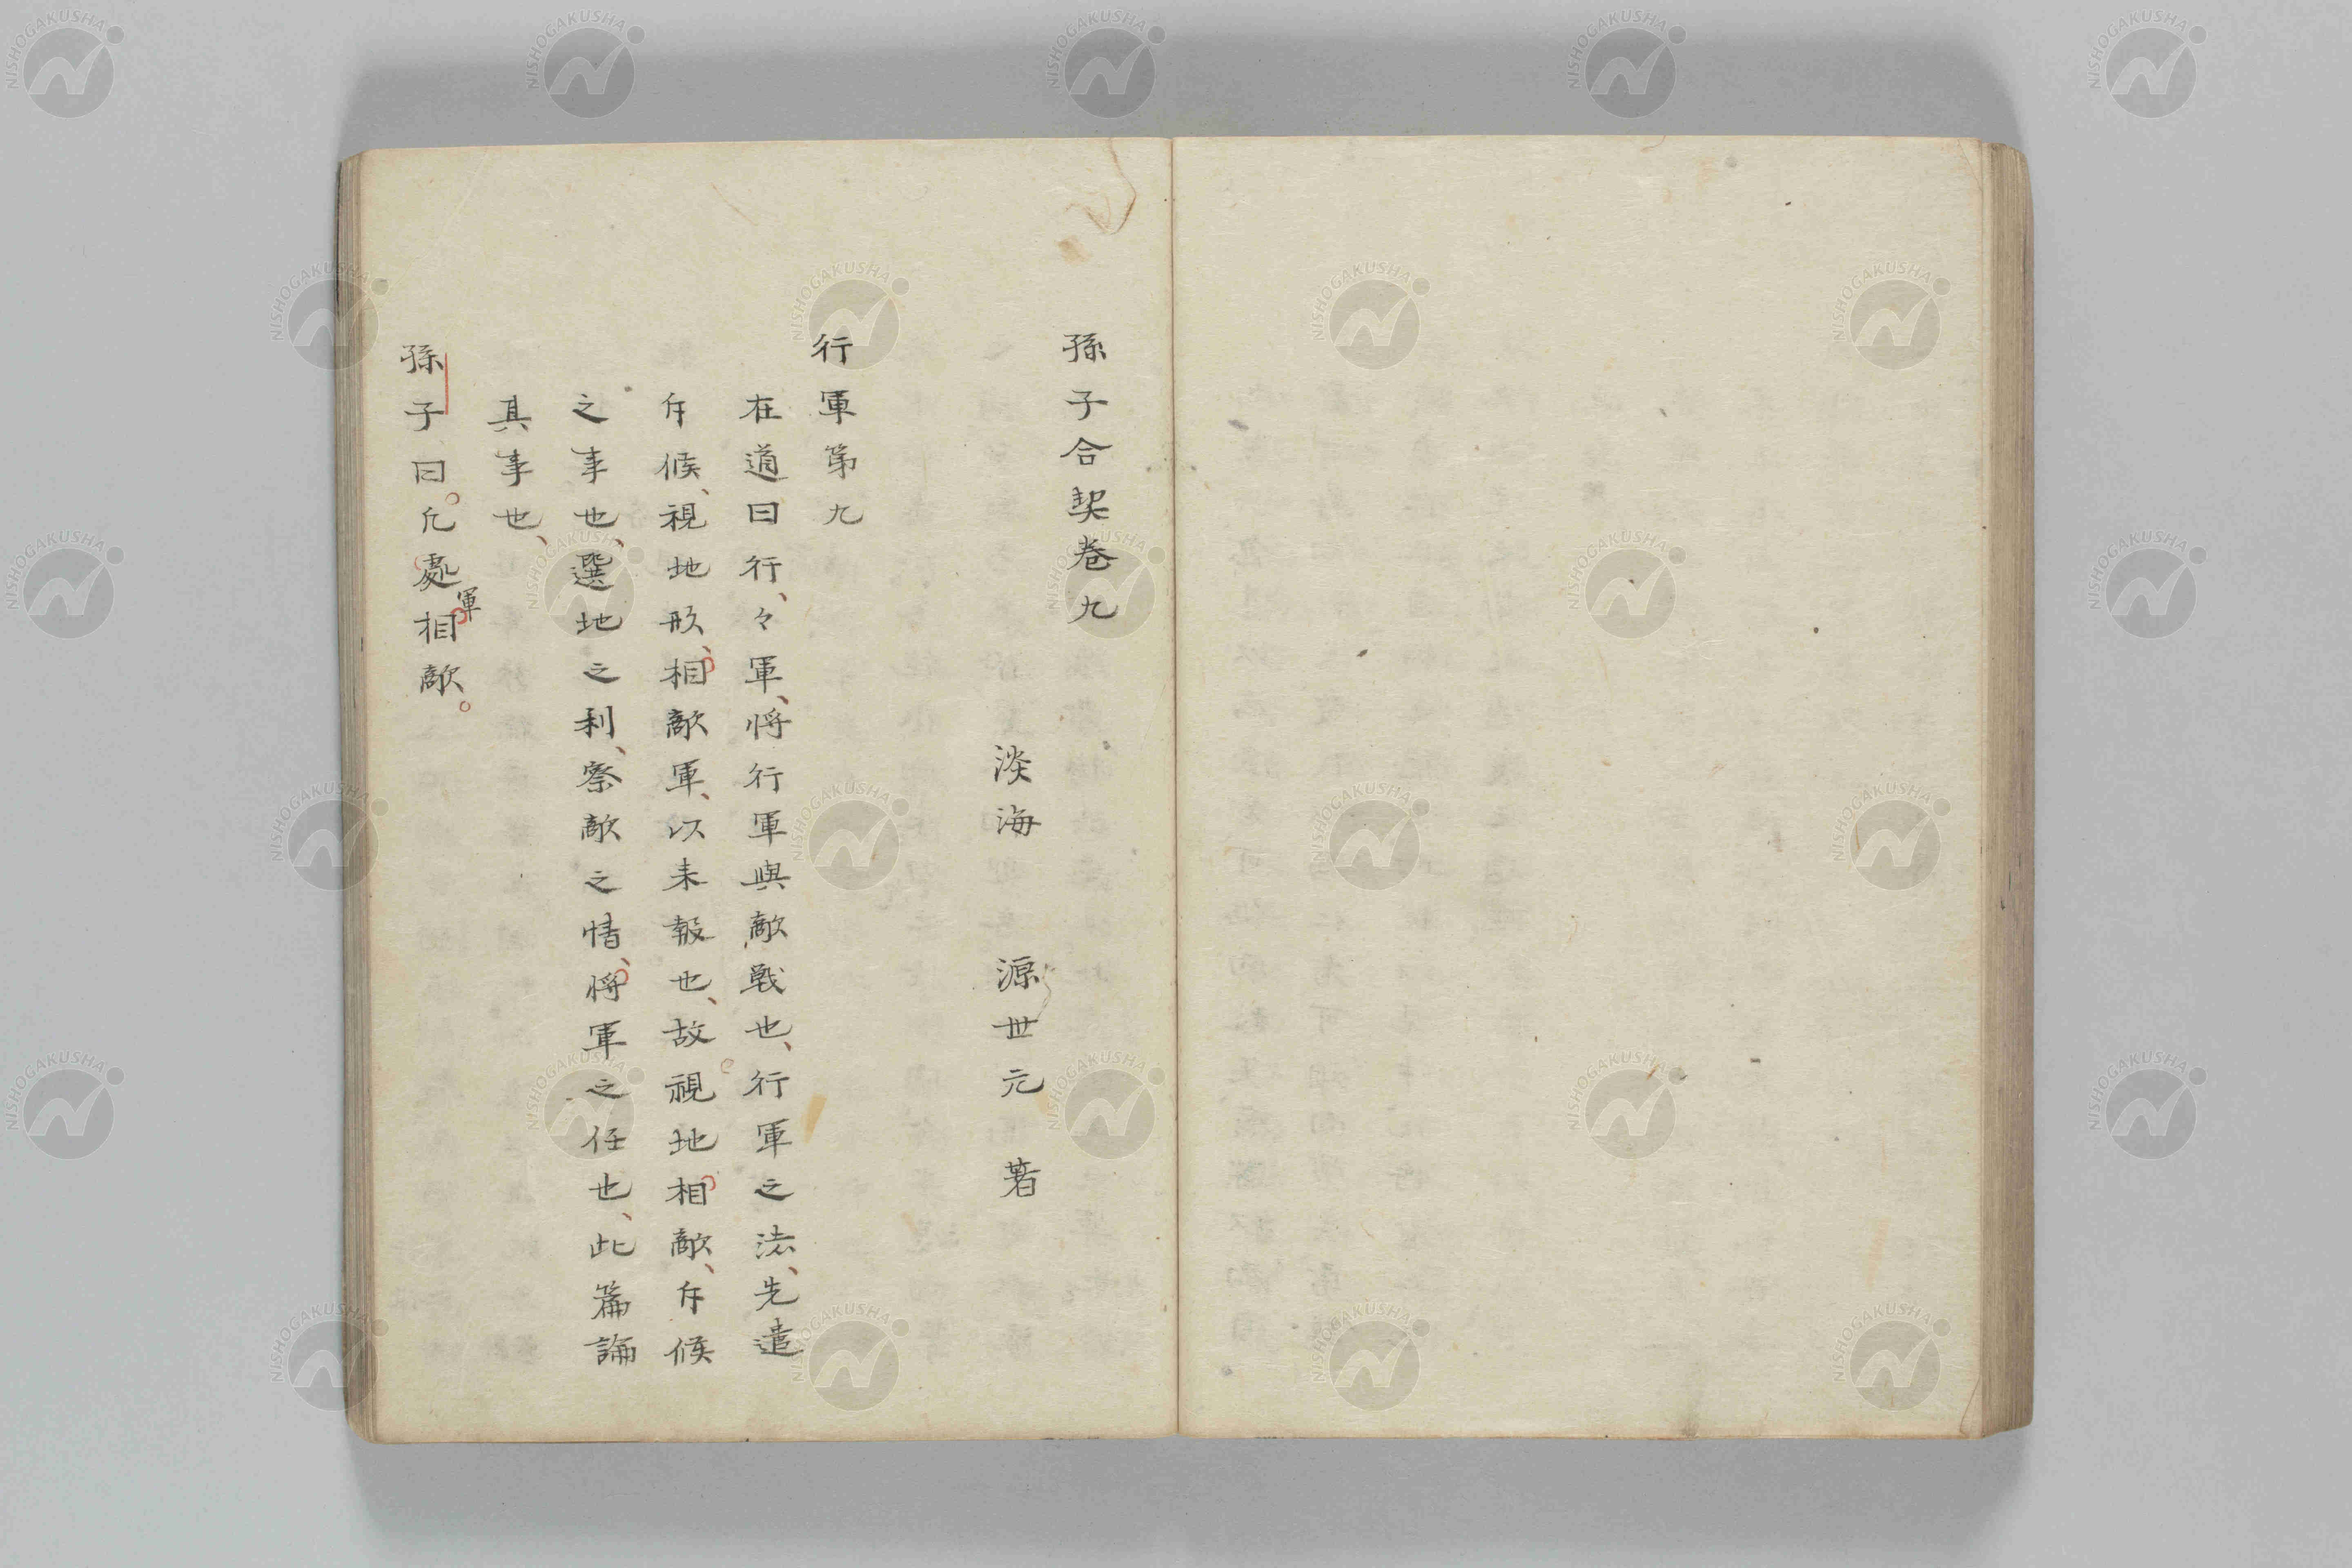 孫子合契卷九
淡海 源世元 著
行軍第九
在道曰行、々軍、将行軍與敵戰也、行軍之法、先遣
斥候、視地形、相敵軍、以来報也、故視地相敵、斥候
之事也、選地之利、察敵之情、将軍之任也、此篇論
其事也、
孫子曰。凢處軍相敵。